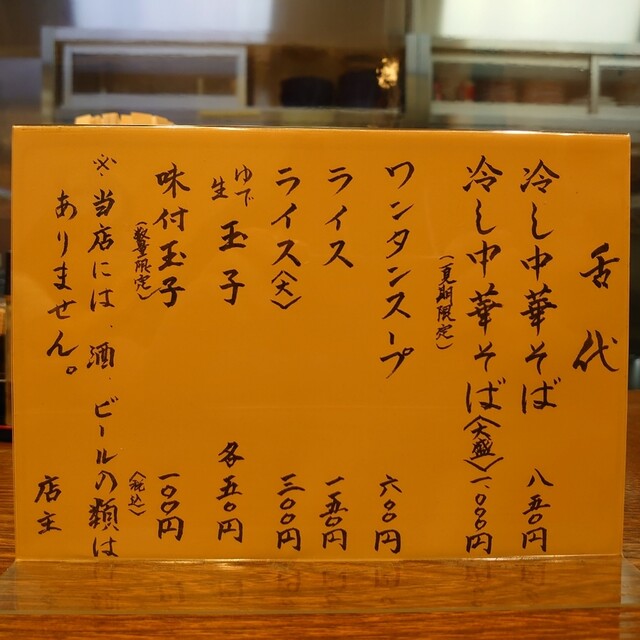 舌代
冷し中華そば 八五〇円
冷し中華そば〈大盛〉一、〇〇〇円
（夏期限定）
ワンタンスープ 六〇〇円
ライス 一五〇円
ライス〈大〉 三〇〇円
ゆで
生 玉子 各五〇円
味付玉子 一〇〇円
（数量限定） 〈税込〉
※当店には、酒、ビールの類は
ありません。
店主